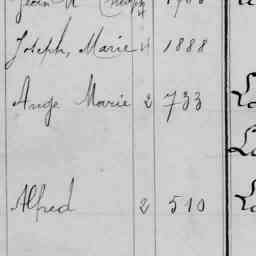 Joseph, Marie 4 1888
Ange Marie 2 733
Alfred 2 510